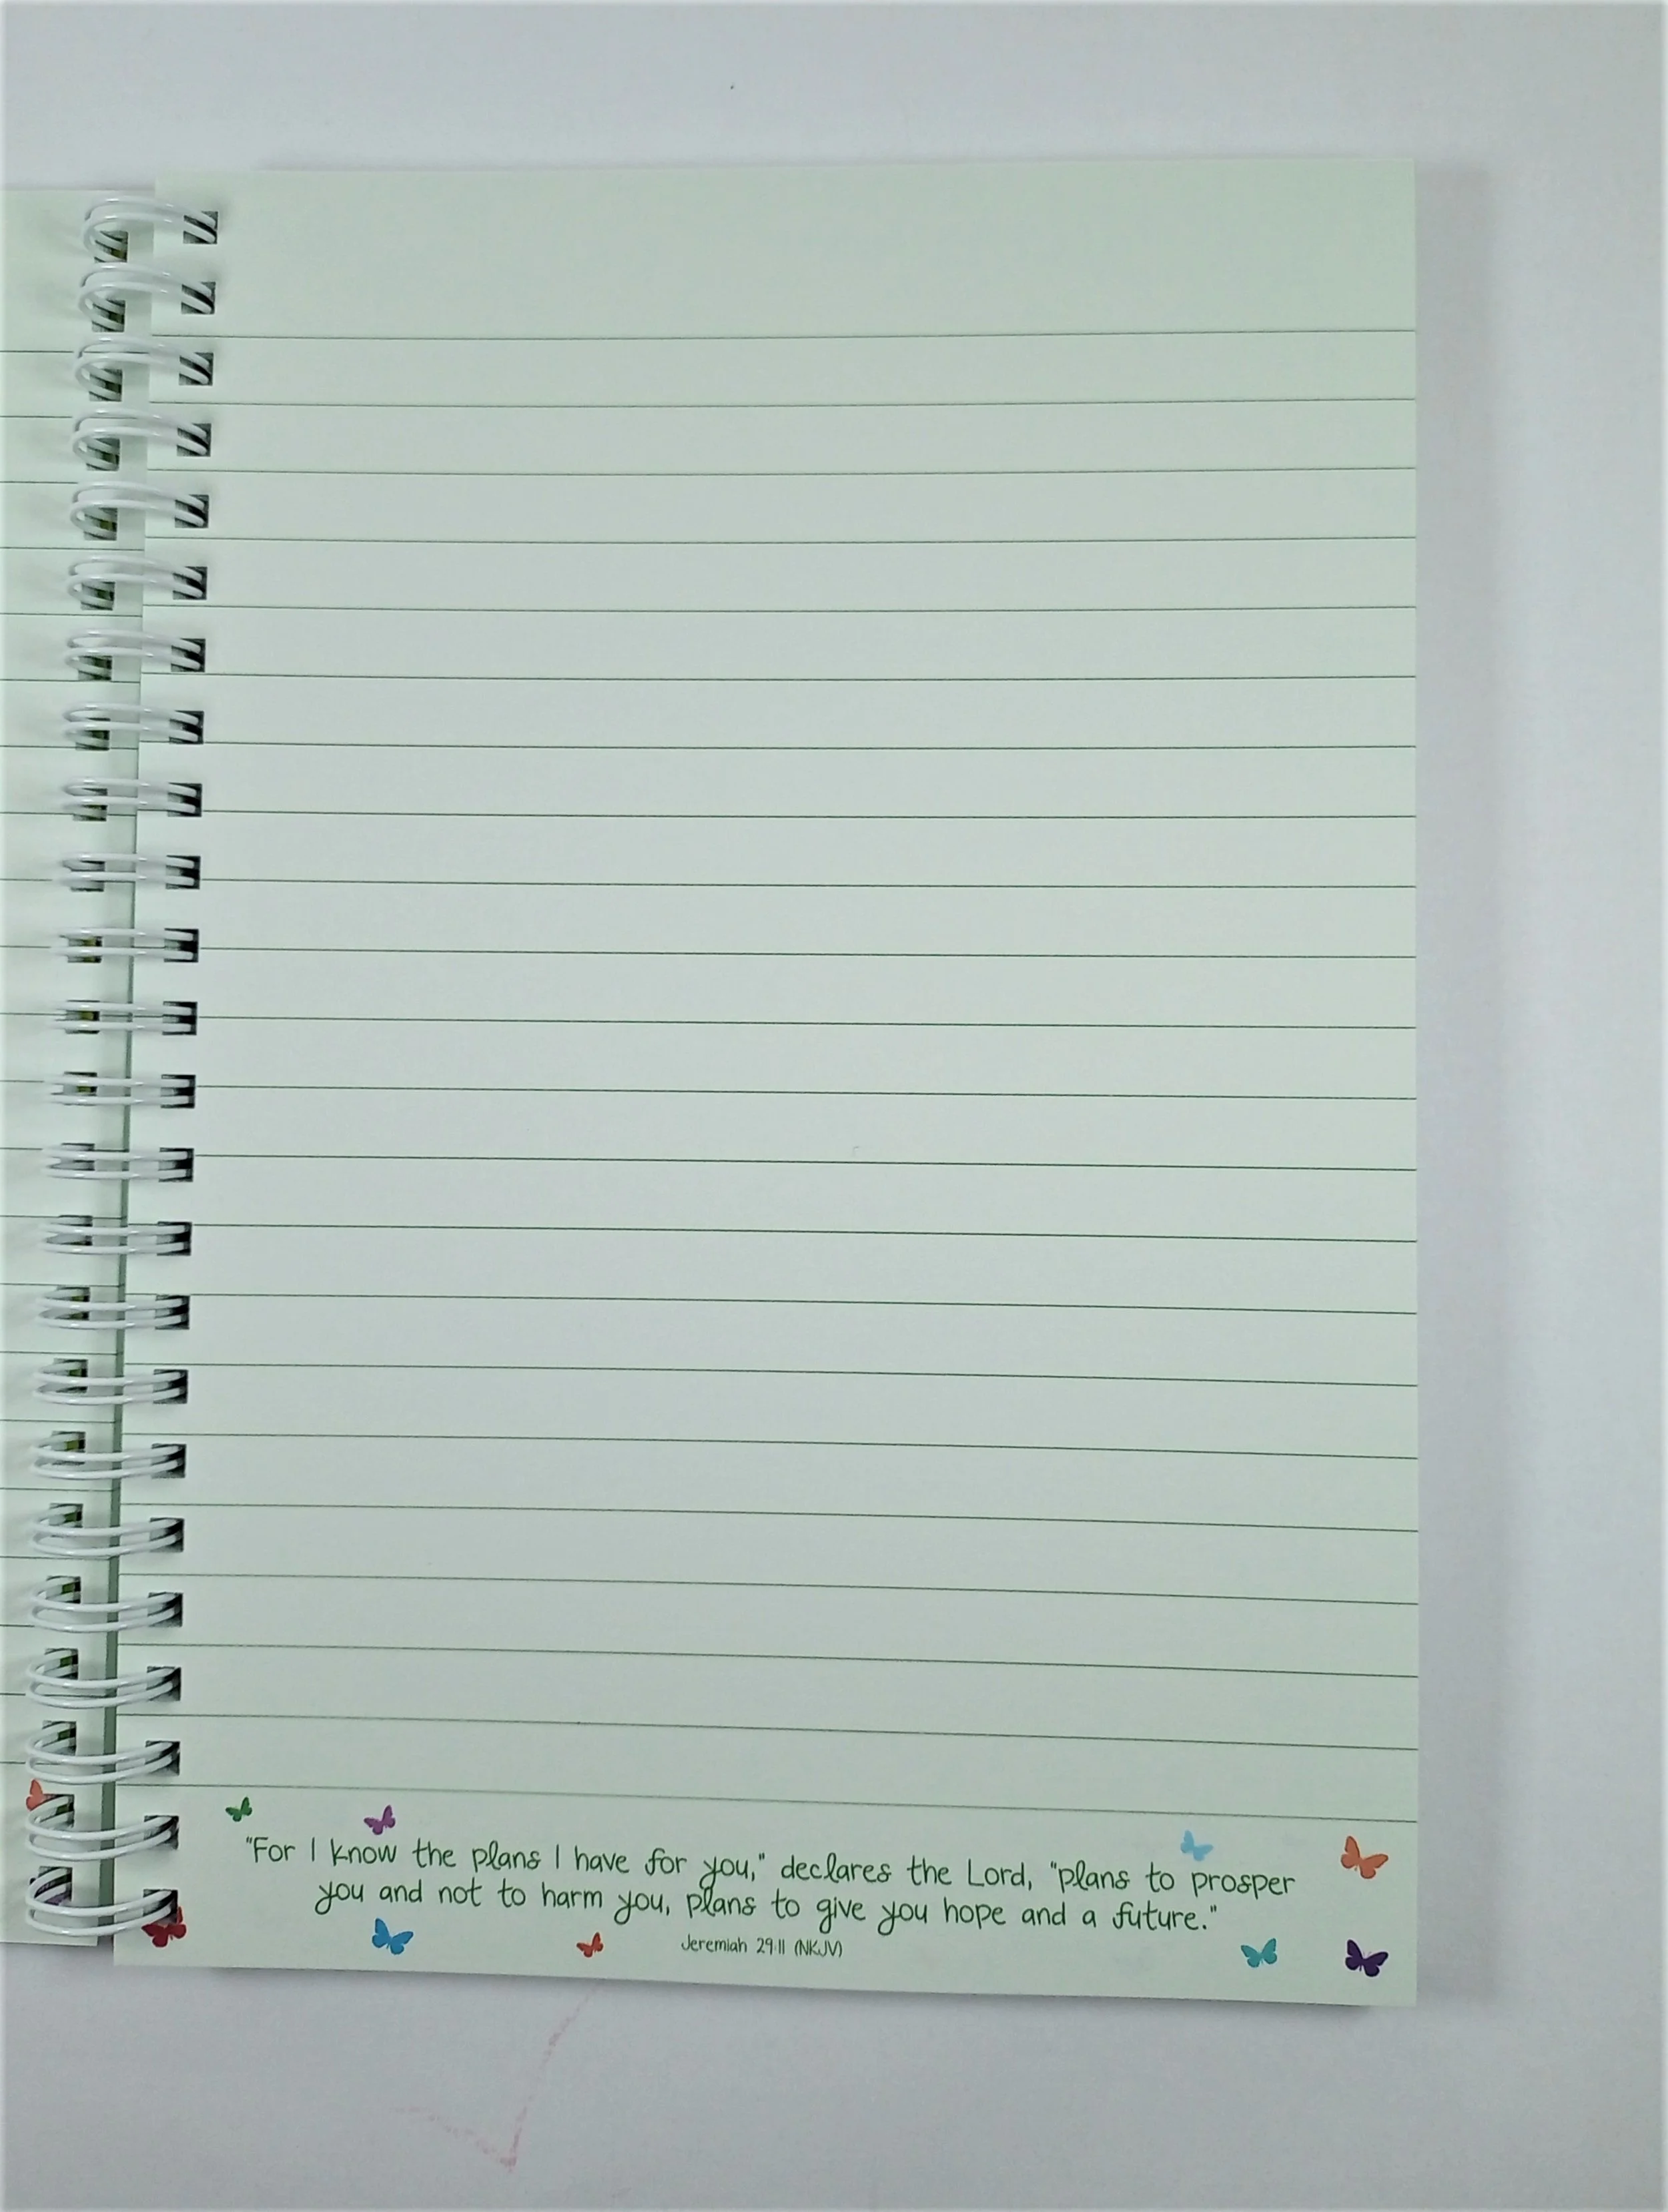 "For I know the plans I have for you," declares the Lord, "plans to prosper
you and not to harm you, plans to give you hope and a future."
Jeremiah 29:11 (NKJV)